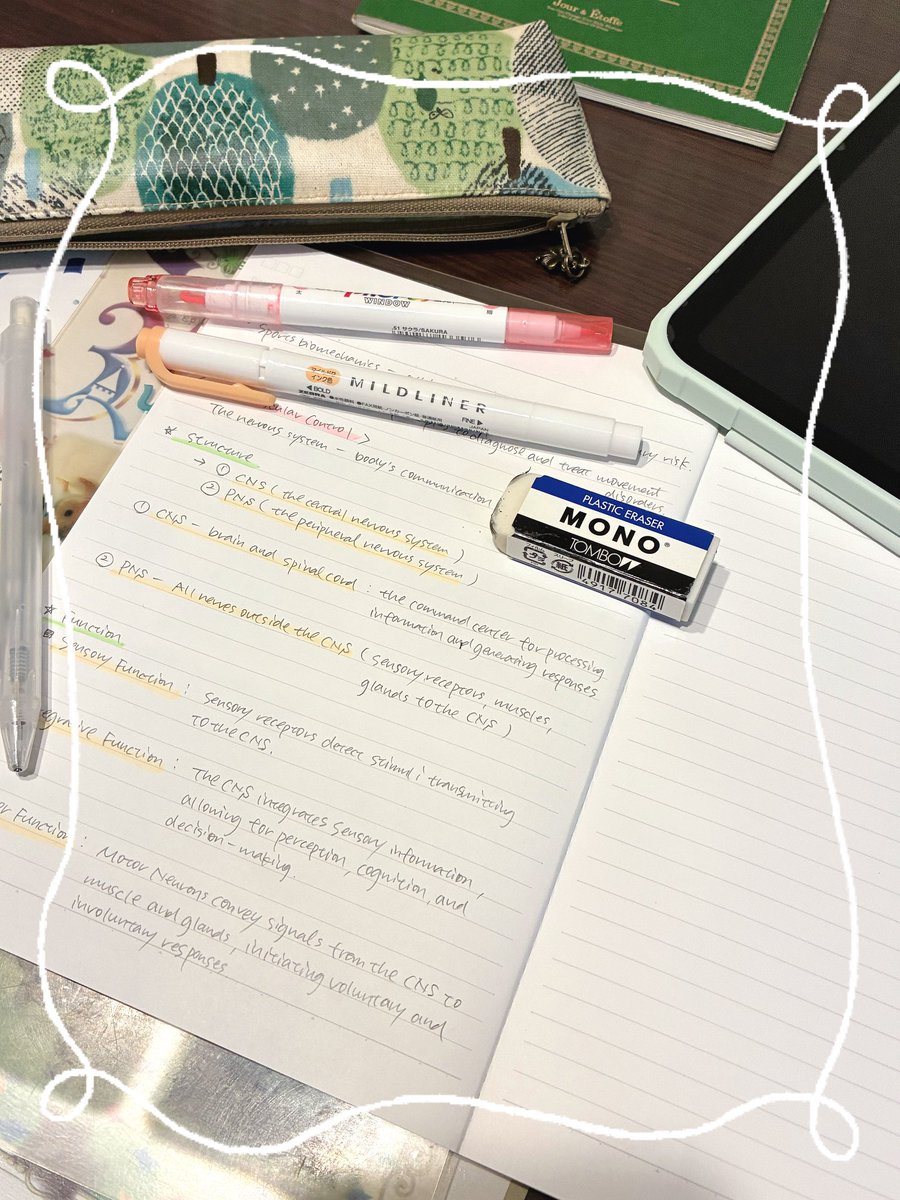 Jour & Étoffe
WINDOW
51 サクラ/SAKURA
Sports biomechanics
インク色
MILDLINER
BOLD
FINE
JAPAN
to diagnose and treat movement
ry risk.
disorders
ular Control >
The nervous system - body's communication
☆ Structure
→ ① CNS (the central nervous system)
② PNS (the peripheral nervous system)
① CNS - brain and spinal cord : the command center for processing
information and generating responses
② PNS - All nerves outside the CNS (sensory receptors, muscles,
glands to the CNS)
☆ Function
Sensory Function : Sensory receptors detect stimuli transmitting
to the CNS.
egrative Function : The CNS integrates sensory information,
allowing for perception, cognition, and
decision-making.
or Function : Motor Neurons convey signals from the CNS to
muscle and glands, initiating voluntary and
involuntary responses
PLASTIC ERASER
MONO
TOMBOW
4917 7084